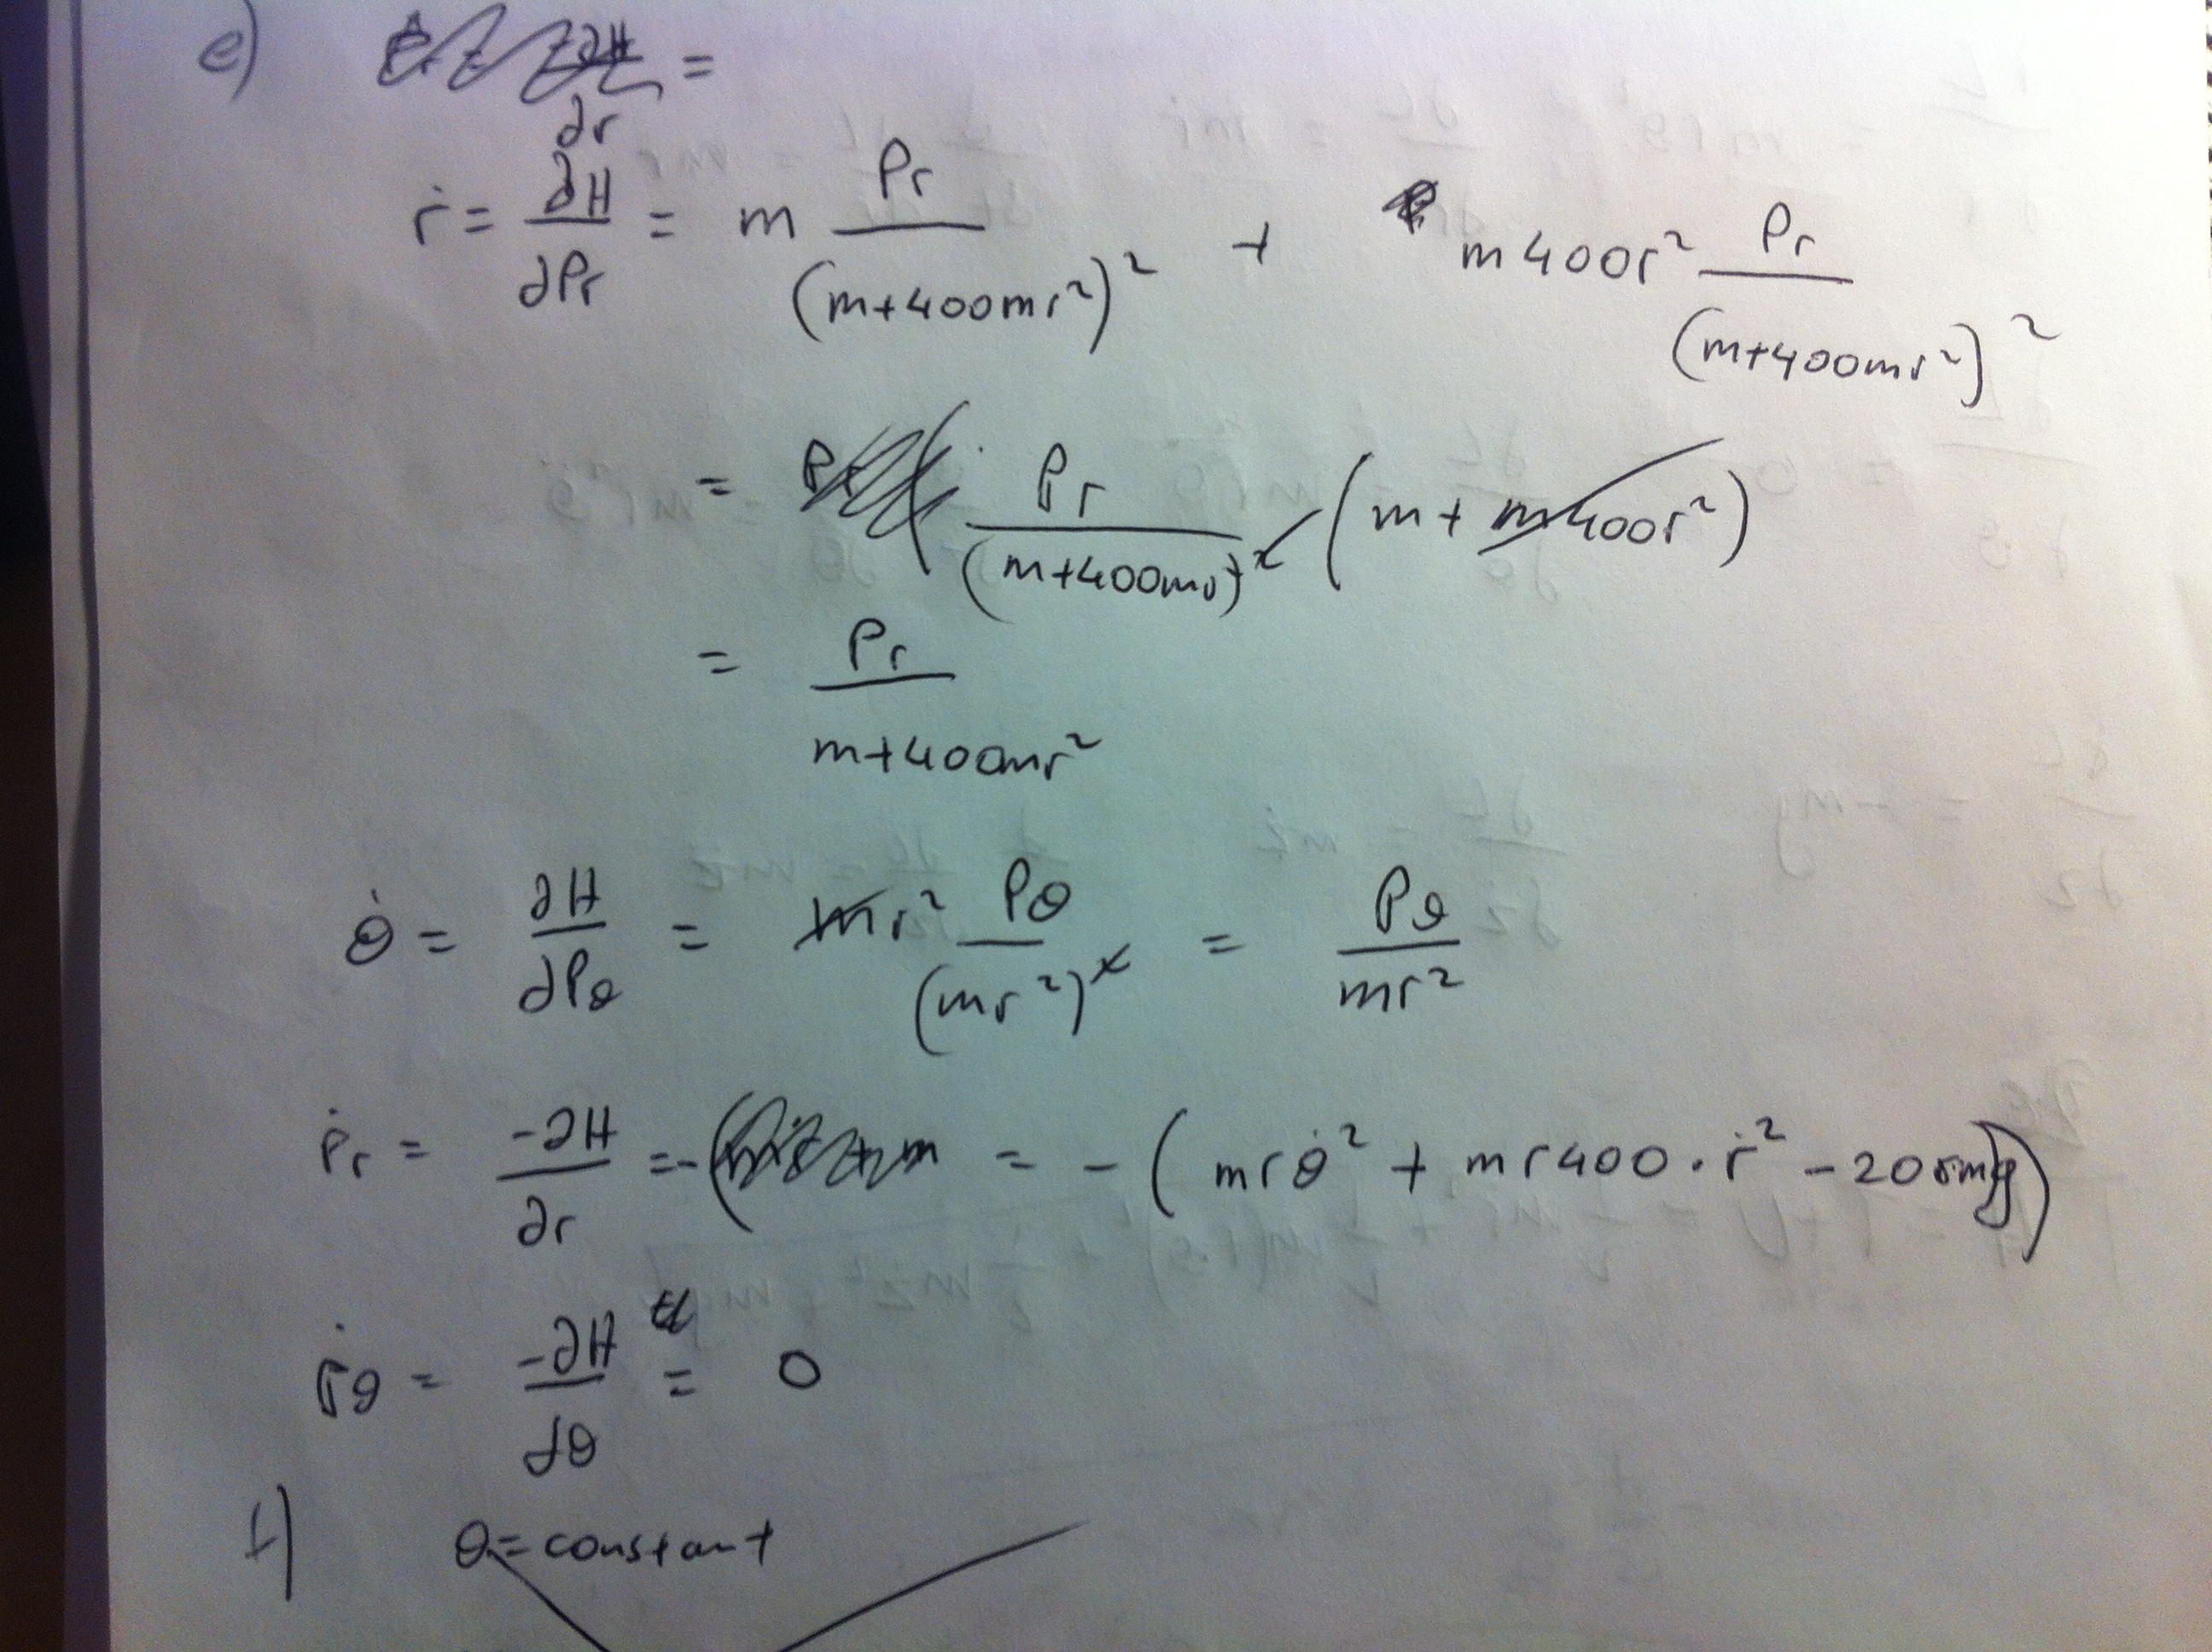 e) =
∂r
ṙ = ∂H/∂Pr = m Pr/(m+400mr²)² + m400r² Pr/(m+400mr²)²
= Pr/(m+400mr²)² (m + m400r²)
= Pr/m+400mr²
θ̇ = ∂H/∂Pθ = mr² Pθ/(mr²)² = Pθ/mr²
Ṗr = -∂H/∂r = - ( m = - ( mrθ̇² + mr400 · ṙ² - 20rmg )
Ṗθ = -∂H/∂θ = 0
f) θ = constant